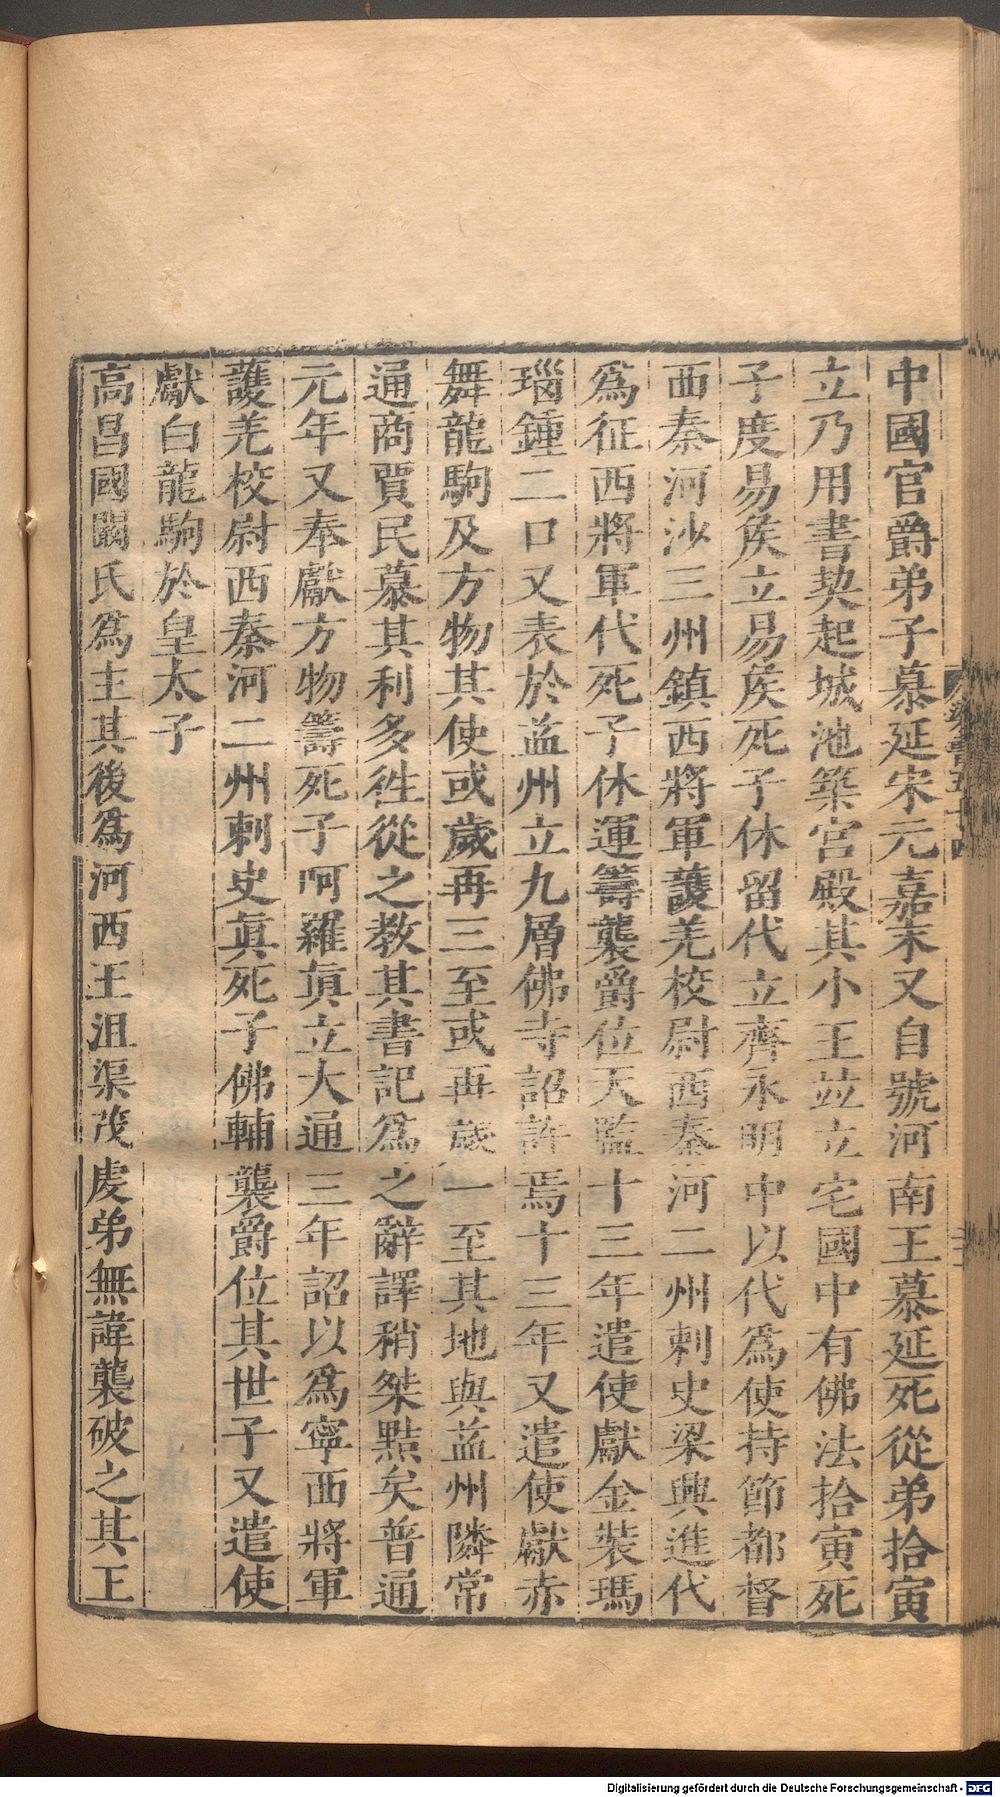 中國官爵弟子慕延宋元嘉末又自號河南王慕延死從弟拾寅
立乃用書契起城池築宮殿其小王並立宅國中有佛法拾寅死
子度易侯立易侯死子休留代立齊永明中以代為使持節都督
西秦河沙三州鎮西將軍護羌校尉西秦河二州刺史梁興進代
爲征西將軍代死子休運籌襲爵位天監十三年遣使獻金裝瑪
瑙鍾二口又表於益州立九層佛寺詔許焉十三年又遣使獻赤
舞龍駒及方物其使或歲再三至或再歲一至其地與益州隣常
通商賈民慕其利多徃從之教其書記爲之辭譯稍桀黠矣普通
元年又奉獻方物籌死子呵羅眞立大通三年詔以爲寧西將軍
護羌校尉西秦河二州刺史眞死子佛輔襲爵位其世子又遣使
獻白龍駒於皇太子
高昌國闞氏爲主其後爲河西王沮渠茂虔弟無諱襲破之其王
梁書五十四
Digitalisierung gefördert durch die Deutsche Forschungsgemeinschaft - DFG